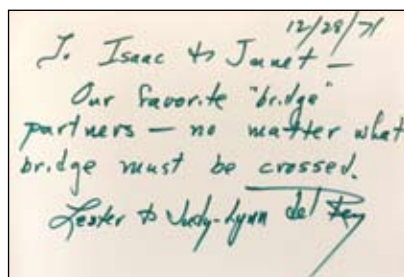 12/28/71
To Isaac & Janet —
Our favorite "bridge"
partners — no matter what
bridge must be crossed.
Lester & Judy-Lynn del Rey